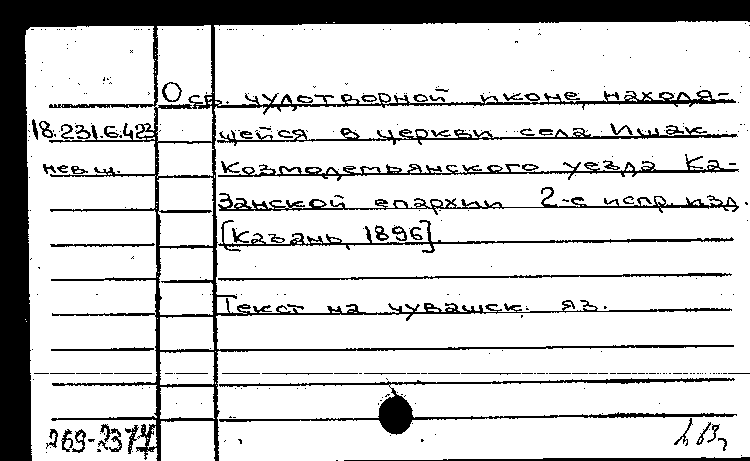 О св. чудотворной иконе, находя-
18.231.6.423 щейся в церкви села Ишак
нев.ш. Козмодемьянского уезда Ка-
занской епархии 2-е испр. изд.
[Казань, 1896].
Текст на чувашск. яз.
269-2377